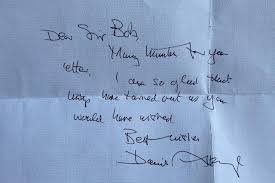 Dear Sir Bob,
Many thanks for your
letter. I am so glad that
things have turned out as you
would have wished.
Best wishes